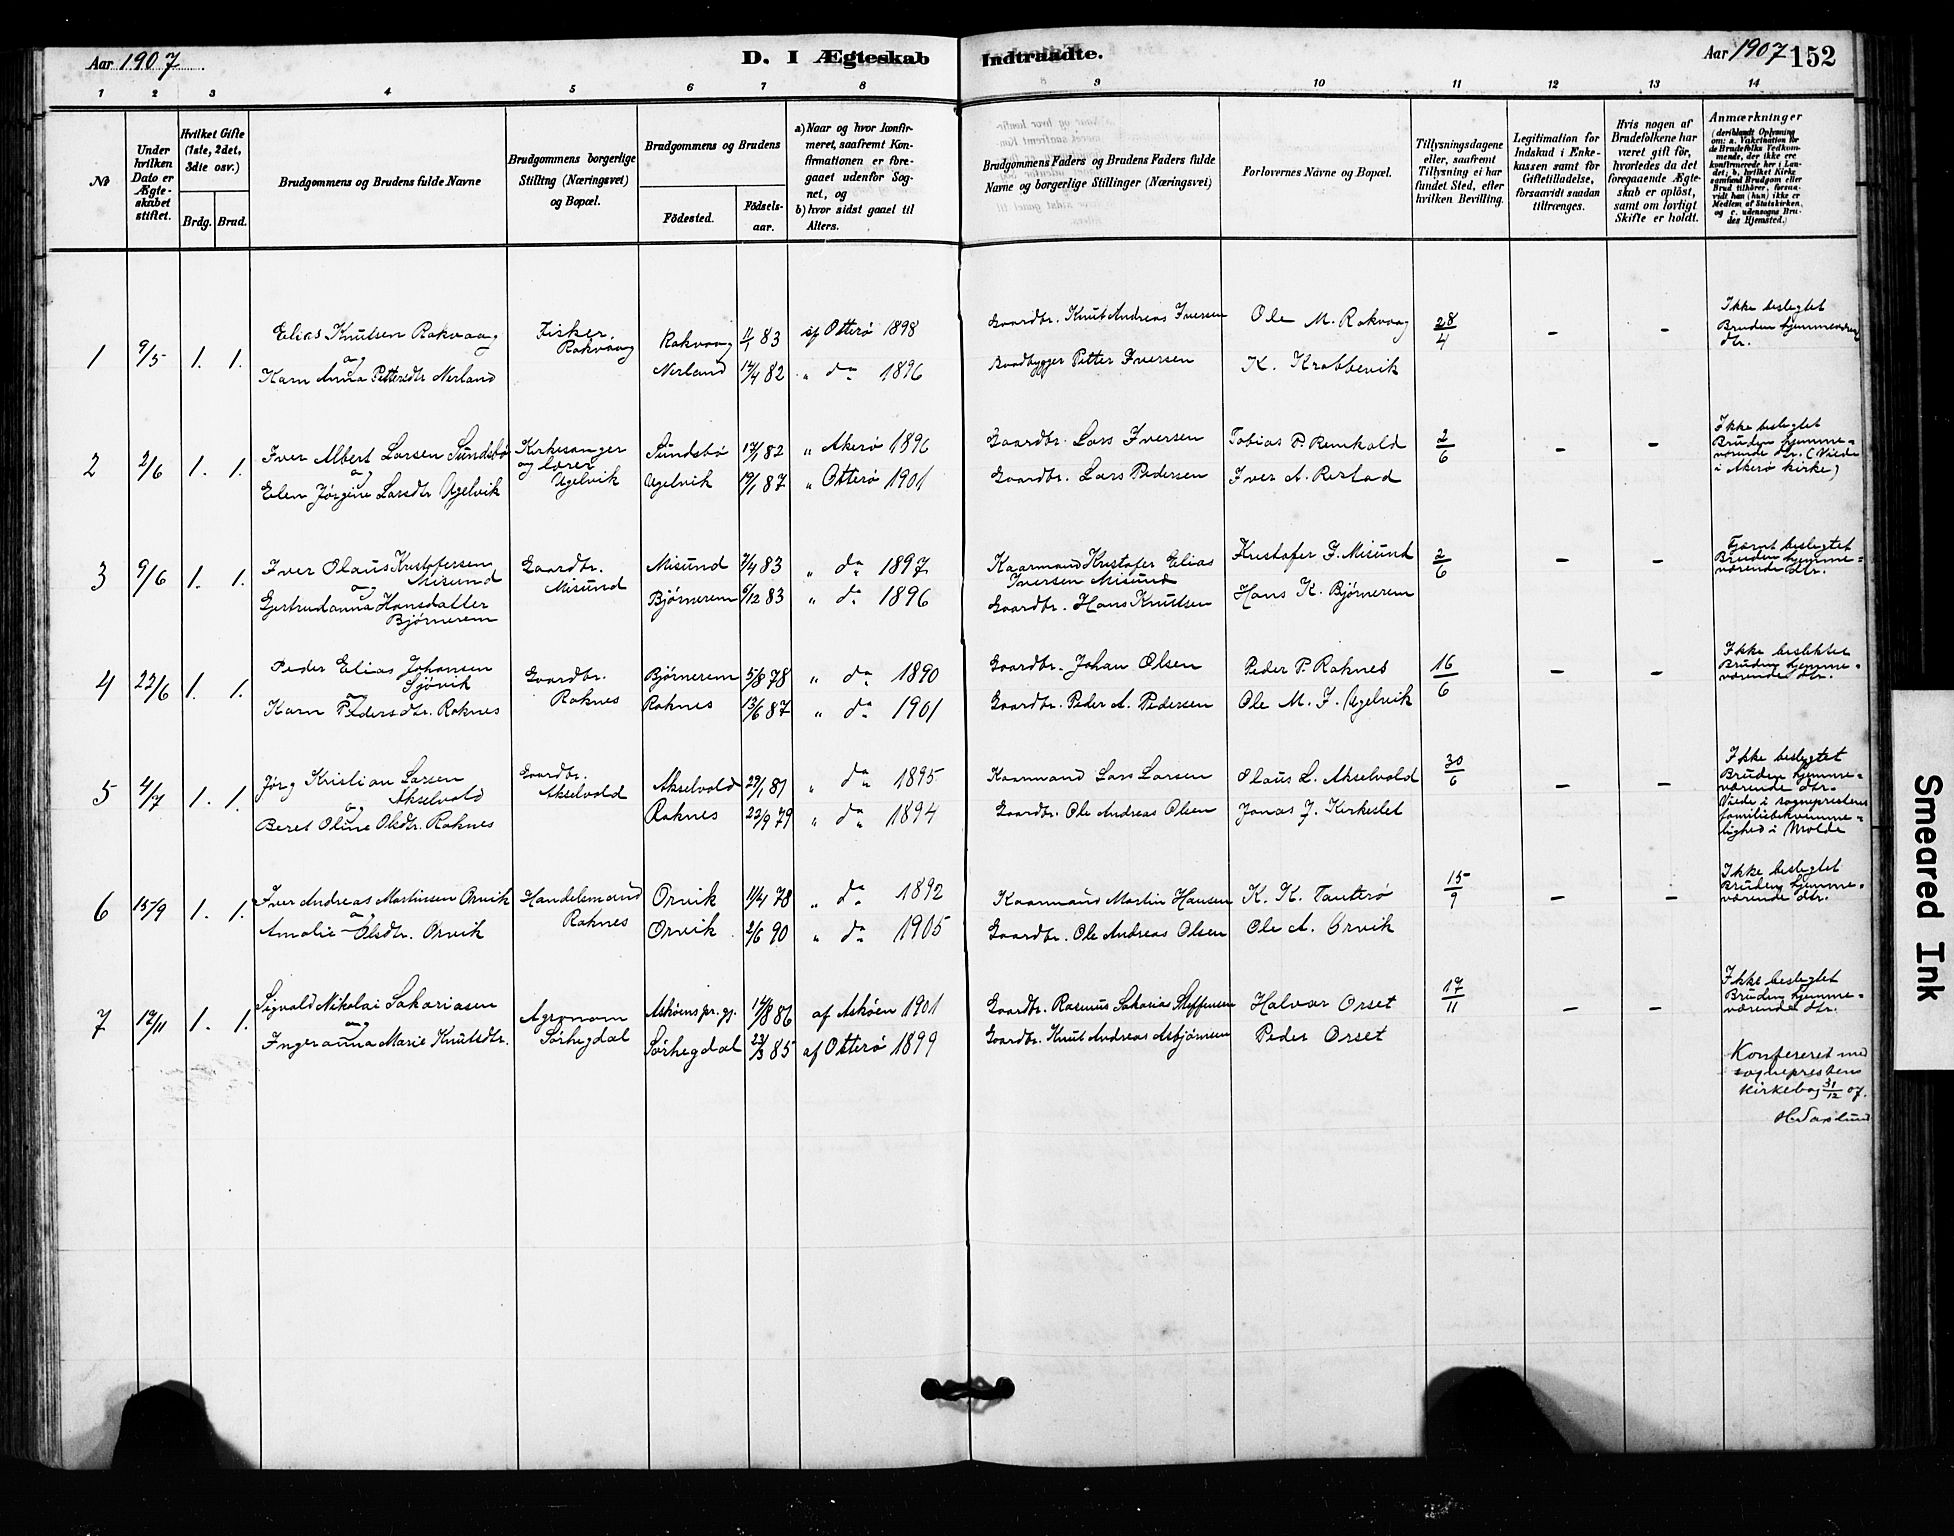 Aar 1907
D. I Ægteskab Indtraadte.
Aar 1907 152
1 2 3 4 5 6 7 8 9 10 11 12 13 14
№
Under
hvilken
Dato er
Ægte-
skabet
stiftet.
Hvilket Gifte
(1ste, 2det,
3die osv.)
Brdg. Brud.
Brudgommens og Brudens fulde Navne
Brudgommens borgerlige
Stilling (Næringsvei)
og Bopæl.
Brudgommens og Brudens
Födested.
Födsels-
aar.
a) Naar og hvor konfir-
meret, saafremt Kon-
firmationen er fore-
gaaet udenfor Sog-
net, og
b) hvor sidst gaaet til
Alters.
Brudgommens Faders og Brudens Faders fulde
Navne og borgerlige Stillinger (Næringsvei)
Forlovernes Navne og Bopæl.
Tillysningsdagene
eller, saafremt
Tillysning ei har
fundet Sted, efter
hvilken Bevilling.
Legitimation for
Indskud i Enke-
kassen samt for
Giftetilladelse,
forsaavidt saadan
tiltrænges.
Hvis nogen af
Brudefolkene har
været gift før,
hvorledes da det
foregaaende Ægte-
skab er opløst,
samt om lovligt
Skifte er holdt.
Anmærkninger
(deriblandt Oplysning
om: a. Vakcination for
de Brudefolks Vedkom-
mende, der ikke ere
konfirmerede her i Lan-
det; b. hvilket Kirke-
samfund Brudgom eller
Brud tilhører, forsaa-
vidt han (hun) ikke er
Medlem af Statskirken,
og c. udensogns Bru-
des Hjemsted.)
1 9/5 1. 1. Elias Knutsen Rakvaag
og
Karn Anna Pettersdtr Nerland
Fisker
Rakvaag
Rakvaag 4/1 83 af Otterø 1898
Nerland 14/4 82 " do 1896
Gaardbr. Knut Andreas Iversen
Baadbygger Petter Iversen
Ole M. Rakvaag
K. Krabbevik
28/4 - -
Ikke beslegtet
Bruden hjemmeværende
dtr.
2 2/6 1. 1. Iver Albert Larsen Sundsbø
og
Elen Jørgine Larsdtr Ugelvik
Kirkesanger
og lærer
Ugelvik
Sundsbø 17/1 82 " Akerø 1896
Ugelvik 19/1 87 " Otterø 1901
Gaardbr. Lars Iversen
Gaardbr. Lars Pedersen
Tobias P. Remkald
Iver A. Restad
2/6 - -
Ikke beslegtet
Bruden hjemme-
værende dtr. (Viede
i Akerø kirke)
3 9/6 1. 1. Iver Olaus Kristofersen
Misund
og
Gertrudanna Hansdatter
Bjørnerem
Gaardbr.
Misund
Misund 7/4 83 " do 1897
Bjørnerem 9/12 83 " do 1896
Kaarmand Kristofer Elias
Iversen Misund
Gaardbr. Hans Knutsen
Kristofer J. Misund
Hans K. Bjørnerem
2/6 - -
Fjernt beslegtet
Bruden hjemme-
værende dtr.
4 22/6 1. 1. Peder Elias Johansen
Sjøvik
og
Karn Pedersdtr. Raknes
Gaardbr.
Raknes
Bjørnerem 5/8 78 " do 1890
Raknes 13/6 87 " do 1901
Gaardbr. Johan Olsen
Gaardbr. Peder A. Pedersen
Peder P. Raknes
Ole M. J. Ugelvik
16/6 - -
Ikke beslektet
Bruden hjemme-
værende dtr.
5 4/7 1. 1. Jørg Kristian Larsen
Akselvold
og
Beret Oline Olsdtr. Raknes
Gaardbr.
Akselvold
Akselvold 29/1 81 " do 1895
Raknes 22/9 79 " do 1894
Kaarmand Lars Larsen
Gaardbr. Ole Andreas Olsen
Olaus L. Akselvold
Jonas J. Kirkeslet
30/6 - -
Ikke beslegtet
Bruden hjemme-
værende dtr.
Viede i sogneprestens
familiebekvemme-
lighed i Molde
6 15/9 1. 1. Iver Andreas Martinsen Orvik
og
Amalie Olsdtr. Orvik
Handelsmand
Raknes
Orvik 11/4 78 " do 1892
Orvik 2/6 90 " do 1905
Kaarmand Martin Hansen
Gaardbr. Ole Andreas Olsen
K. K. Tauterø
Ole A. Orvik
15/9 - -
Ikke beslegtet
Bruden hjemme-
værende dtr.
7 17/11 1. 1. Sigvald Nikolai Sakariasen
og
Ingeranna Marie Knutsdtr.
Agronom
Sørhegdal
Askøens pr.gj. 14/8 86 af Askøen 1901
Sørhegdal 23/3 85 af Otterø 1899
Gaardbr. Rasmus Sakarias Steffensen
Gaardbr. Knut Andreas Asbjørnsen
Halvar Orset
Peder Orset
17/11 - -
Ikke beslegtet
Bruden hjemme-
værende dtr.
Konfereret med
sogneprestens
kirkebog 31/12 07.
Smeared Ink